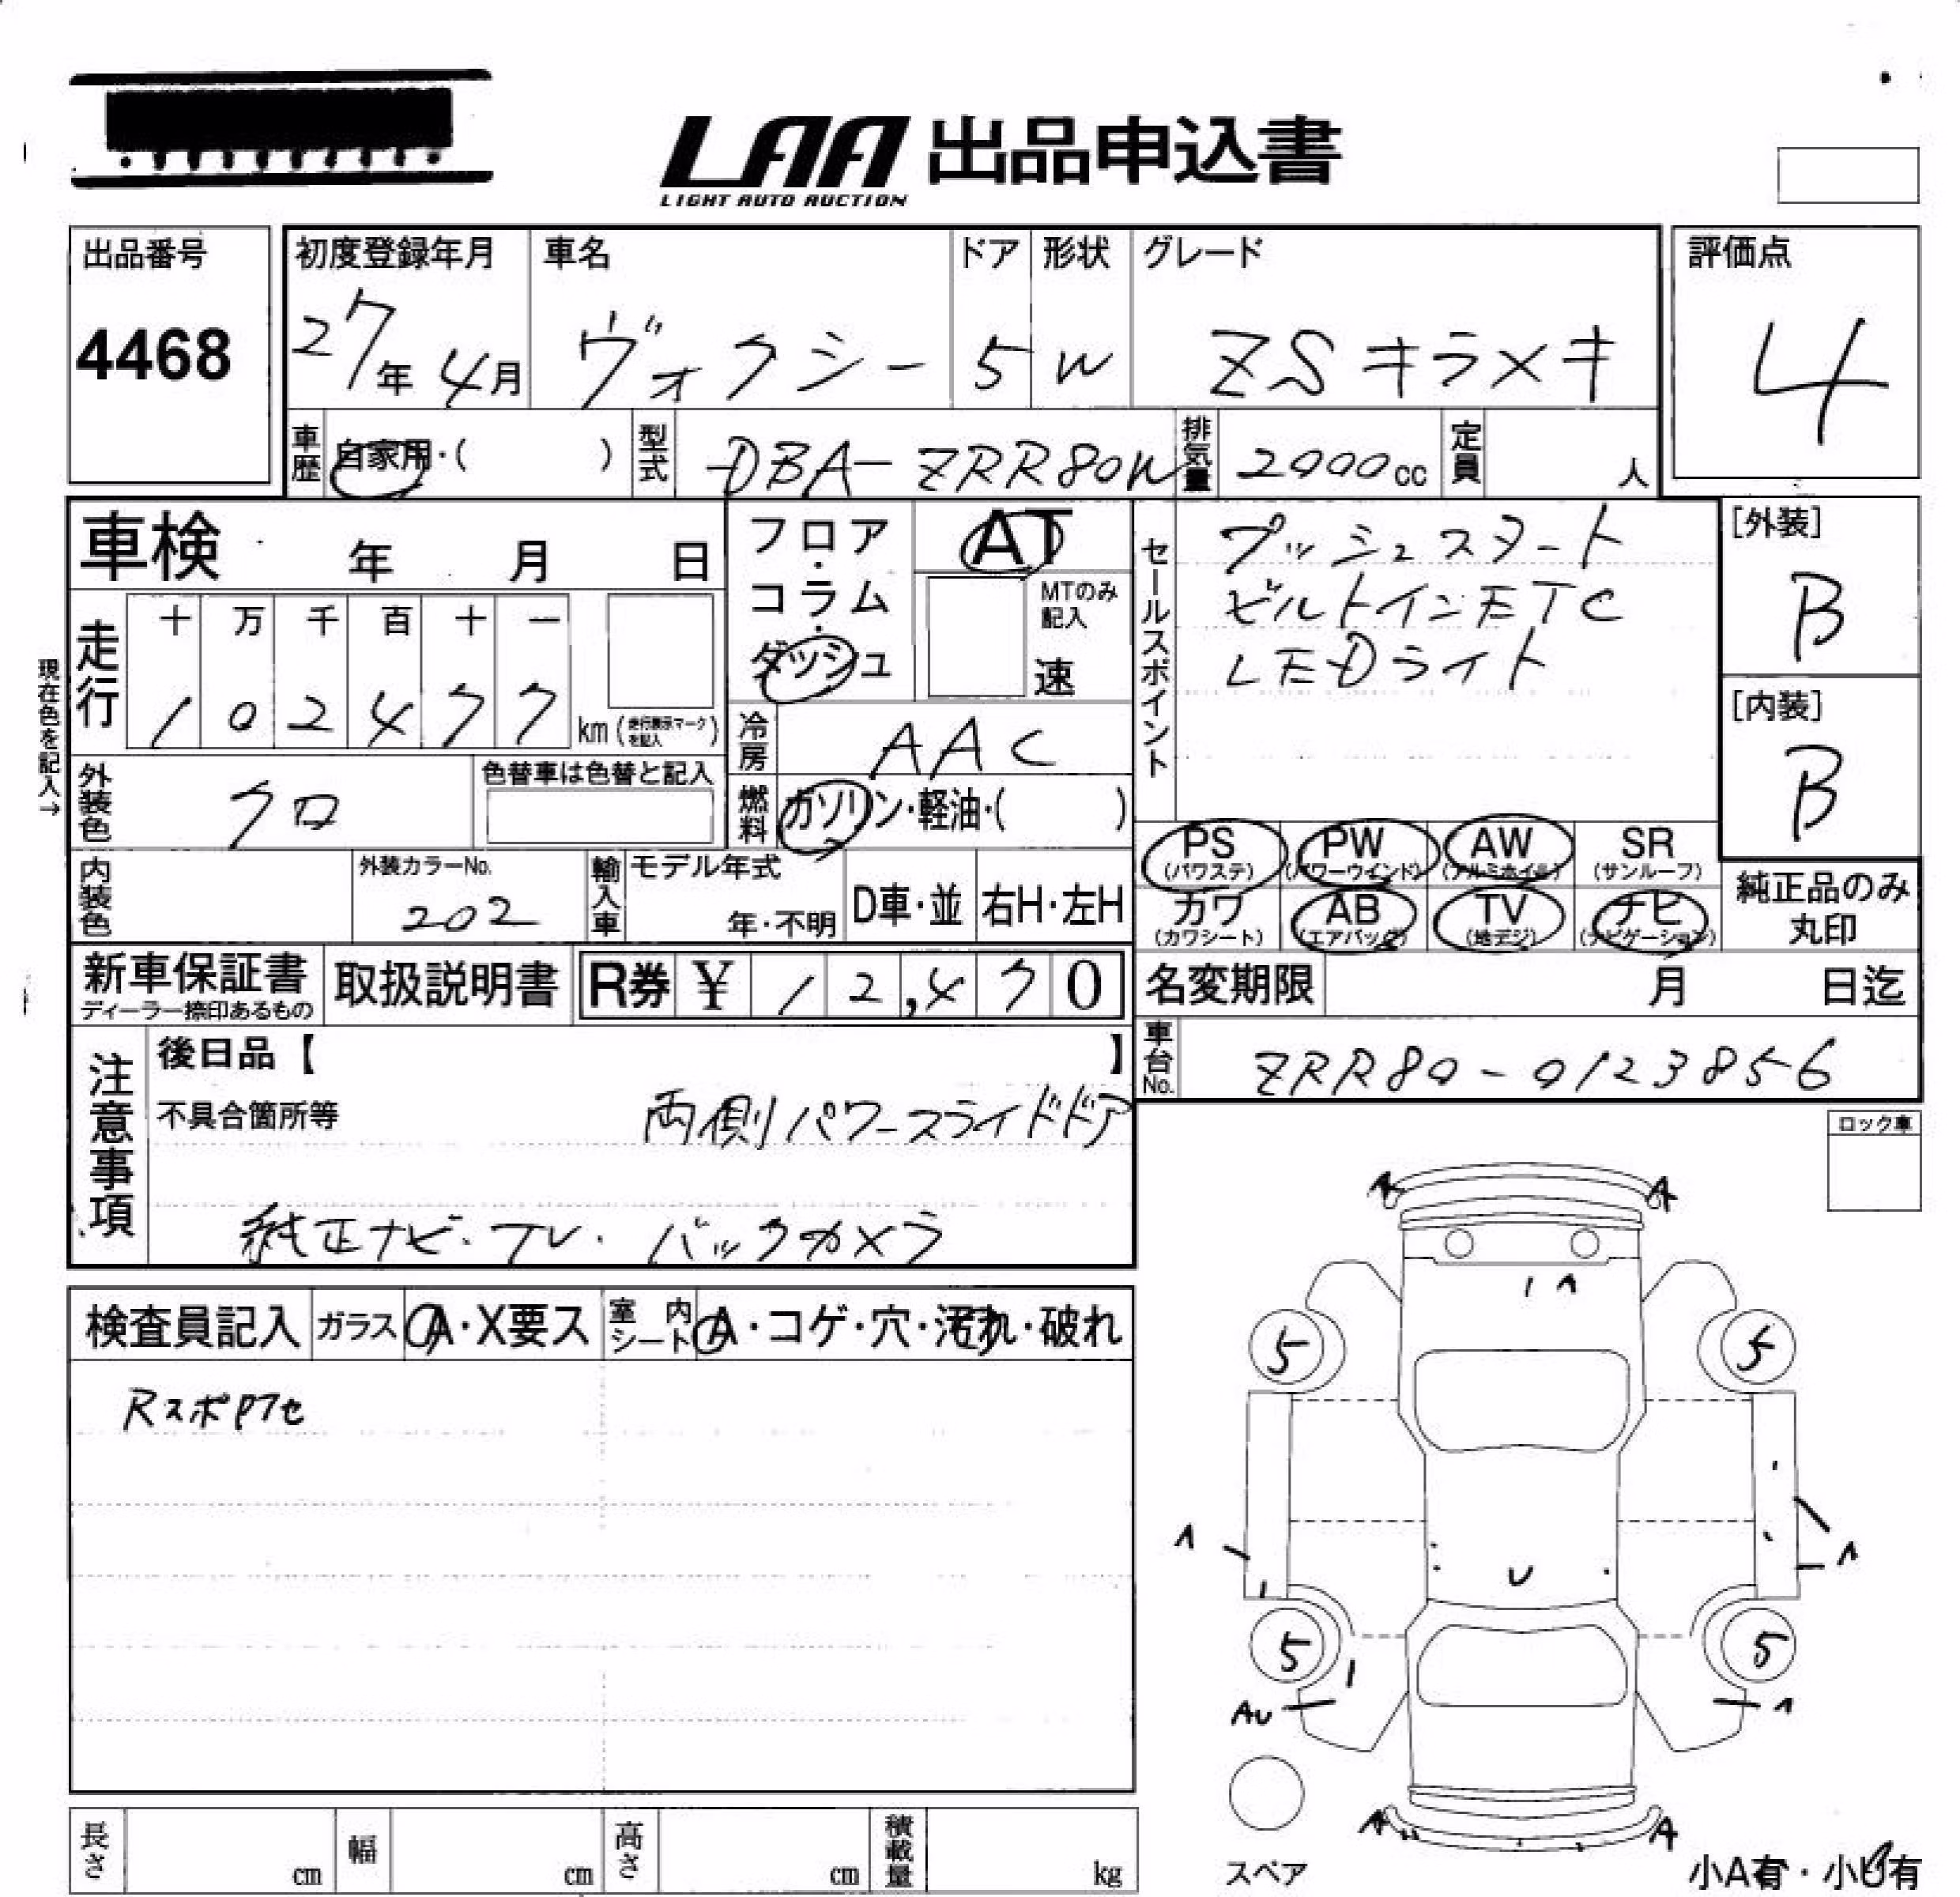 LAA 出品申込書
LIGHT AUTO AUCTION
出品番号
4468
初度登録年月
27年 4月
車名
ヴォクシー
ドア
5
形状
W
グレード
ZSキラメキ
評価点
4
車歴
自家用・( )
型式
DBA-ZRR80W
排気量
2000cc
定員
人
車検 年 月 日
フロア・コラム・ダッシュ
AT
MTのみ記入
速
セールスポイント
プッシュスタート
ビルトインETC
LEDライト
[外装]
B
[内装]
B
現在色を記入→
走行
十 万 千 百 十 一
1 0 2 4 7 7 km (走行表示マークを記入)
冷房
AAC
外装色
クロ
色替車は色替と記入
燃料
ガソリン・軽油・( )
PS (パワステ)
PW (パワーウインド)
AW (アルミホイル)
SR (サンルーフ)
カワ (カワシート)
AB (エアバッグ)
TV (地デジ)
ナビ (ナビゲーション)
純正品のみ丸印
内装色
外装カラーNo.
202
輸入車
モデル年式
年・不明
D車・並
右H・左H
新車保証書
ディーラー捺印あるもの
取扱説明書
R券 ¥ 12,470
名変期限 月 日迄
車台No.
ZRR80-0123856
注意事項
後日品【 】
不具合箇所等
両側パワースライドドア
純正ナビ・TV・バックカメラ
ロック車
検査員記入
ガラス
A・X要ス
室内シート
A・コゲ・穴・汚れ・破れ
RスポPアセ
A A
A
5 5
A A
U
5 5
AU A
A A
スペア
小A有・小U有
長さ cm
幅 cm
高さ cm
積載量 kg